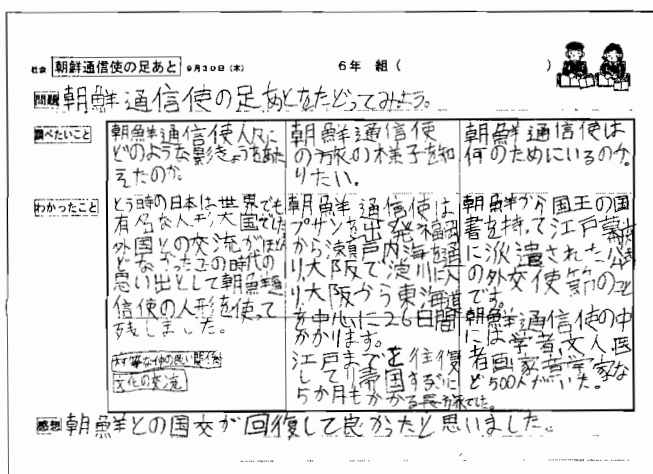 社会 朝鮮通信使の足あと 9月30日(木) 6年 組( )
問題 朝鮮通信使の足あとをたどってみよう。
調べたいこと
朝鮮通信使人々に
どのような影きょうをあた
えたのか。
朝鮮通信使
の旅の様子を知
りたい。
朝鮮通信使は
何のためにいるのか。
わかったこと
とう時の日本は、世界でも
有名な人形大国でした
外国との交流がほとん
どなかったこの時代の
思い出として朝鮮通
信使の人形を使って
残しました。
対等な仲の良い関係
文化の交流
朝鮮通信使は
プサンを出発福岡
から瀬戸内海を通
り、大阪で淀川に入
り、大阪から東海道
を中心に26日間
かかります。
江戸までを往復
して帰国するのに
5か月もかかる長旅でした。
朝鮮から国王の国
書を持って江戸幕府
に派遣された公式
の外交使節のこと
です。
朝鮮通信使の中
には学者文人医
者画家音学家な
ど500人がいた。
感想 朝鮮との国交が回復して良かったと思いました。